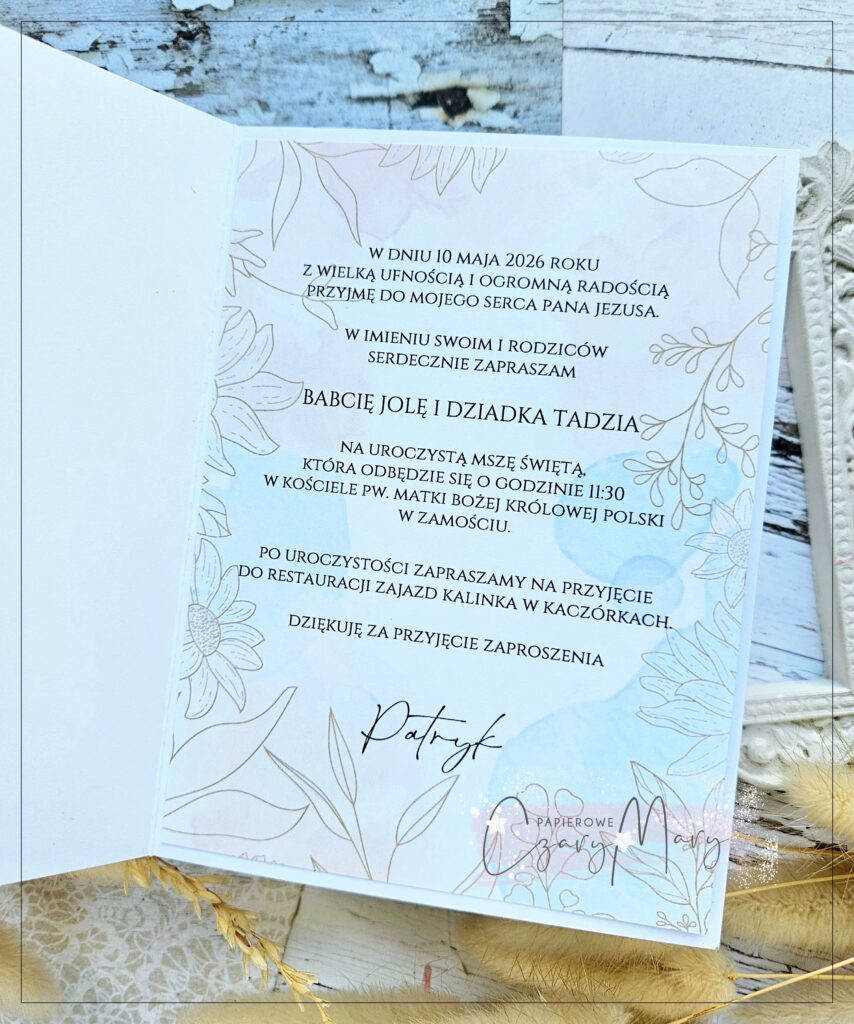 W DNIU 10 MAJA 2026 ROKU
Z WIELKĄ UFNOŚCIĄ I OGROMNĄ RADOŚCIĄ
PRZYJMĘ DO MOJEGO SERCA PANA JEZUSA.
W IMIENIU SWOIM I RODZICÓW
SERDECZNIE ZAPRASZAM
BABCIĘ JOLĘ I DZIADKA TADZIA
NA UROCZYSTĄ MSZĘ ŚWIĘTĄ,
KTÓRA ODBĘDZIE SIĘ O GODZINIE 11:30
W KOŚCIELE PW. MATKI BOŻEJ KRÓLOWEJ POLSKI
W ZAMOŚCIU.
PO UROCZYSTOŚCI ZAPRASZAMY NA PRZYJĘCIE
DO RESTAURACJI ZAJAZD KALINKA W KACZÓRKACH.
DZIĘKUJĘ ZA PRZYJĘCIE ZAPROSZENIA
Patryk
PAPIEROWE
Czary Mary